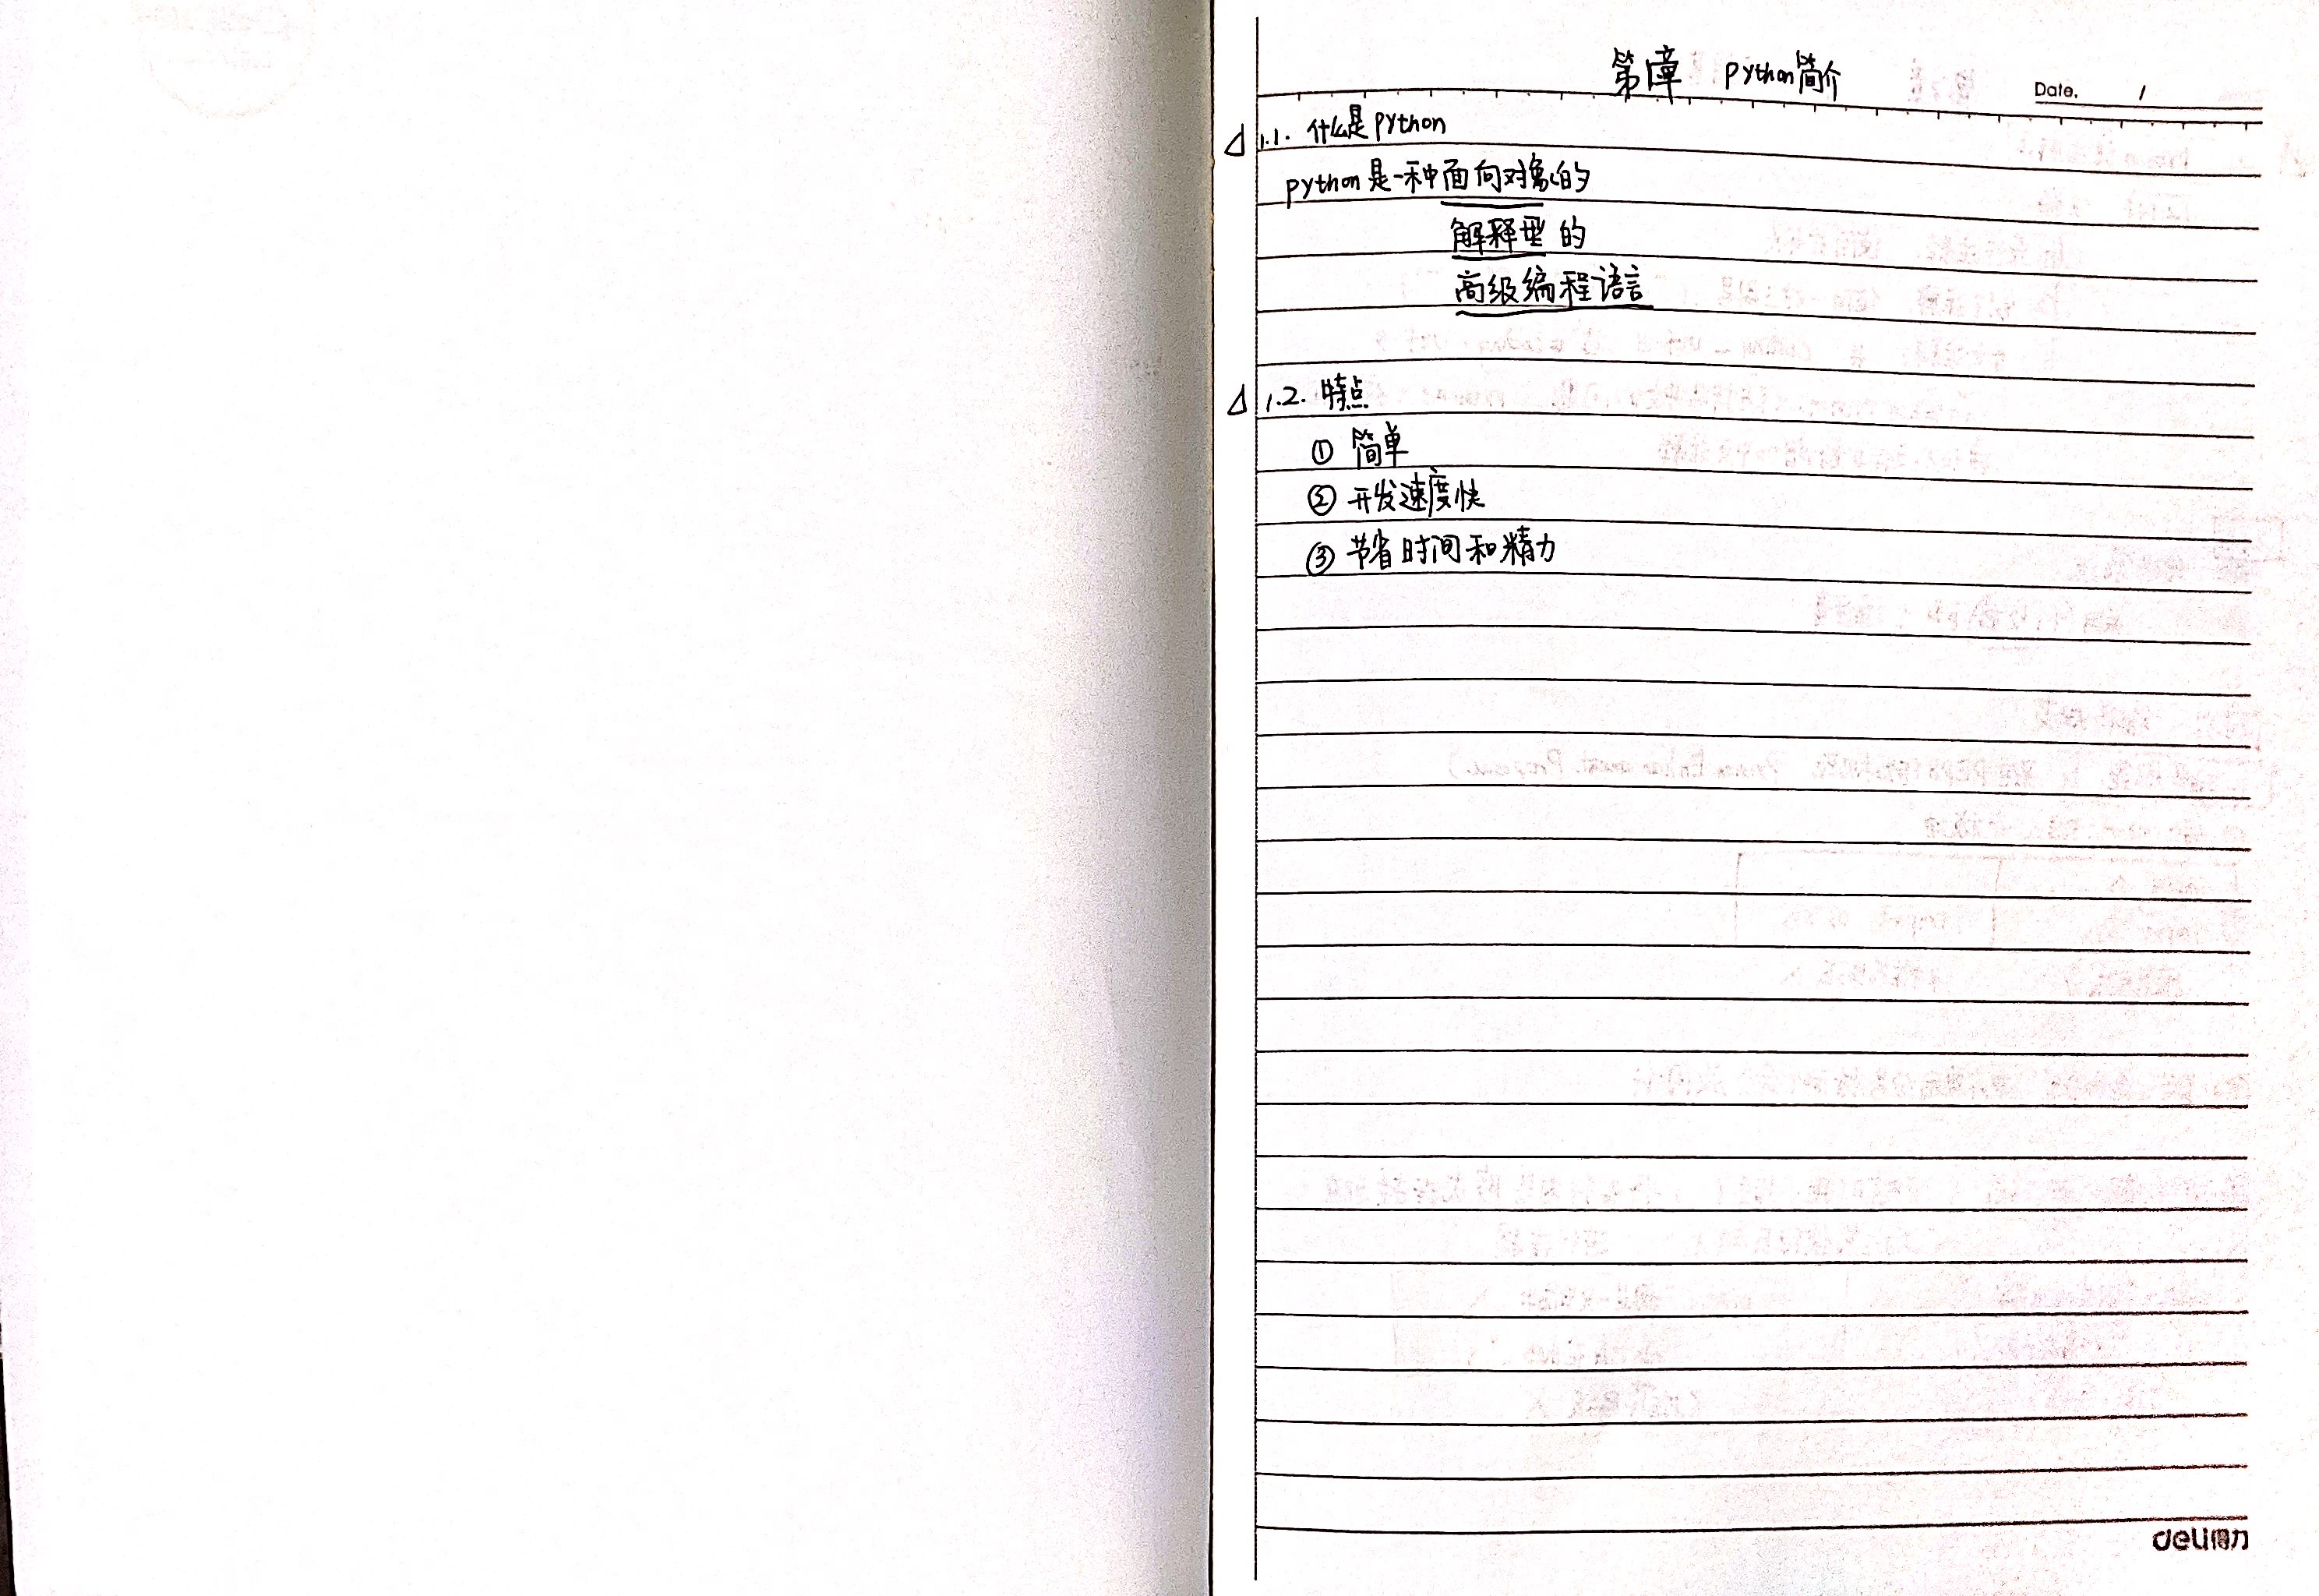 第一章 python简介
Date. /
△ 1.1. 什么是python
python是一种面向对象的
解释型的
高级编程语言
△ 1.2. 特点
① 简单
② 开发速度快
③ 节省时间和精力
deli得力